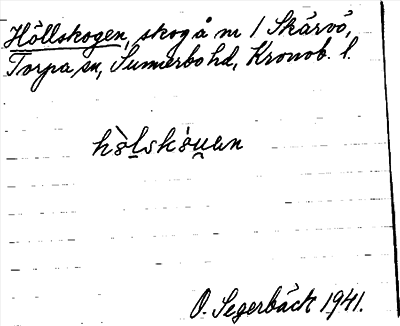 Höllskogen, skog å nr 1 Skärvö,
Torpa sn, Sunnerbo hd, Kronob. l.
hö̀lskóu̯an
O. Segerbäck 1941.